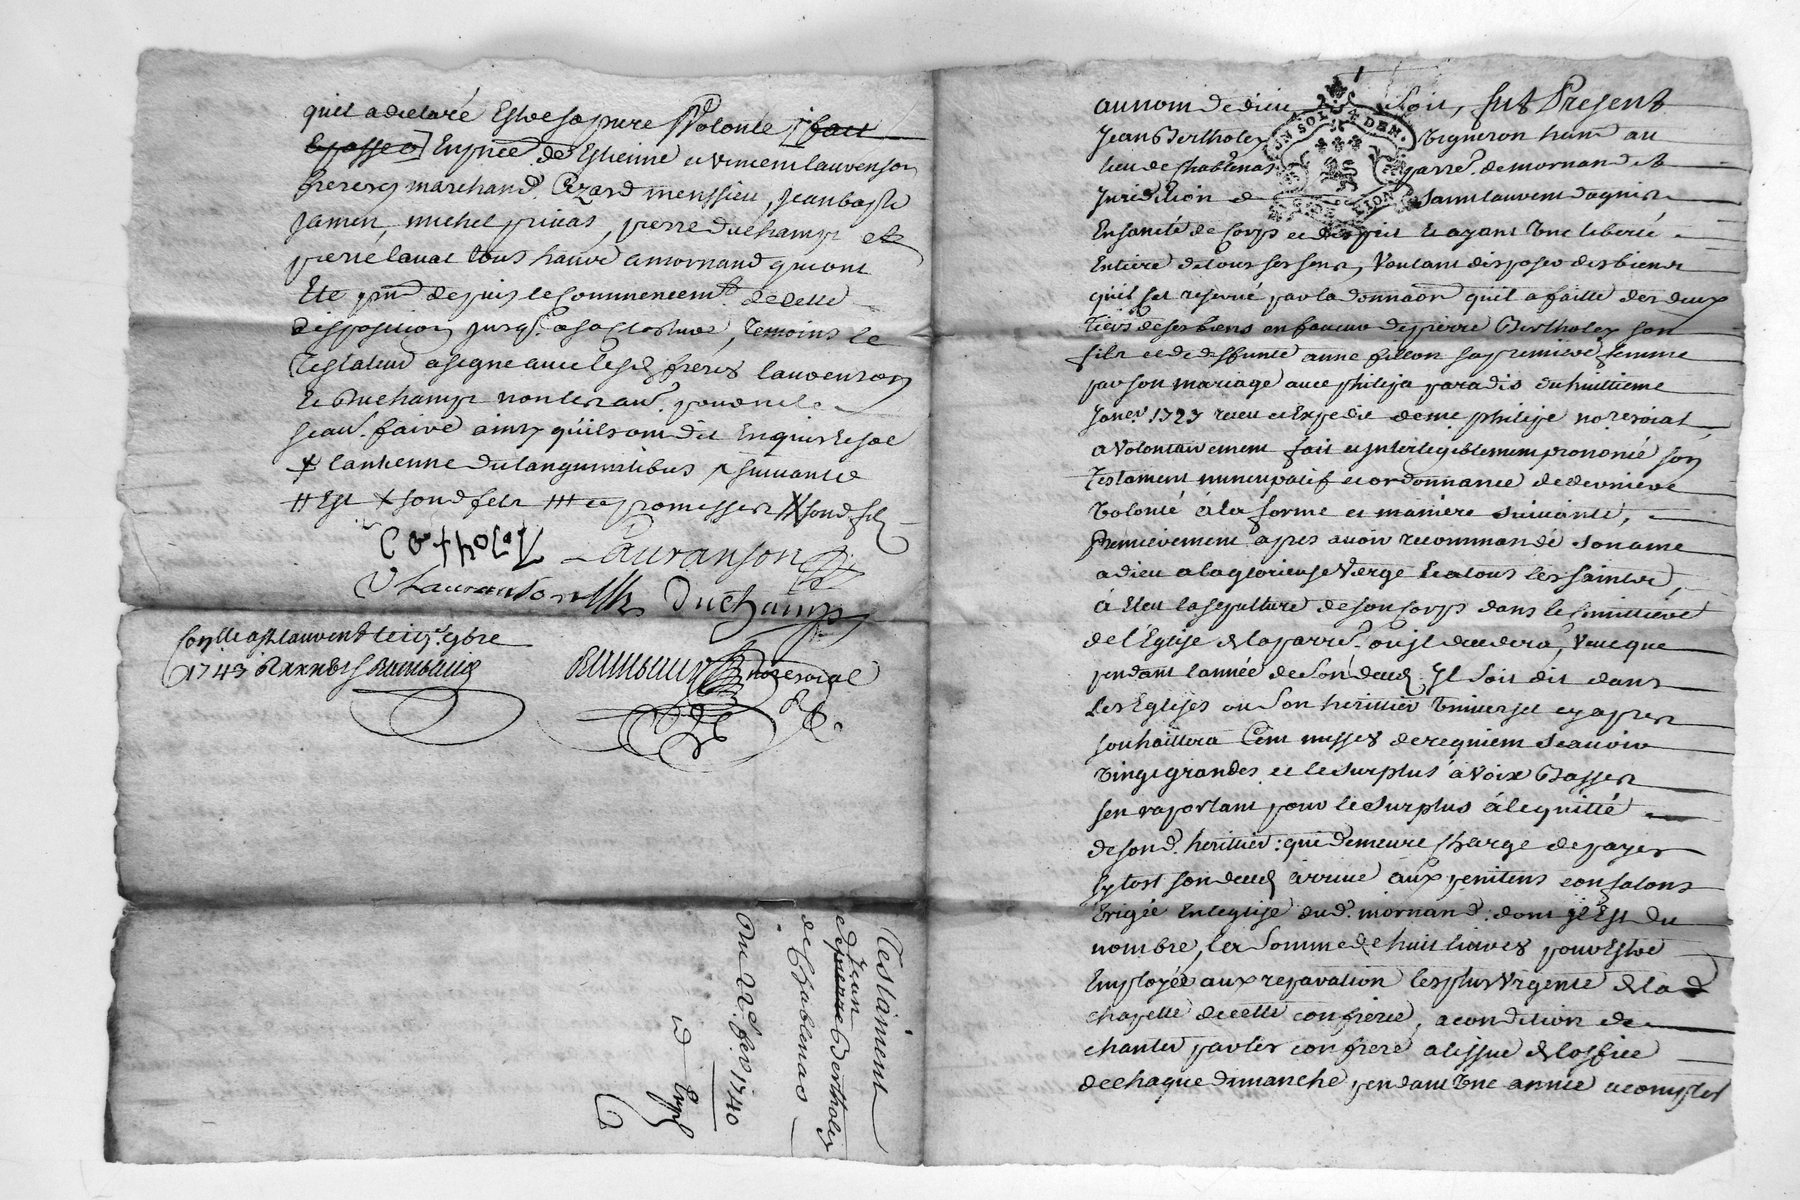 qu'il a declaré Estre sa pure Volonté [fait
& passé a] En pñce de Estienne et vincent lauvenson
freres marchand. Cezard menssieu, Jean bapte
Jamen, michel privas, pierre duchamp et
pierre laval tous havñt a mornand qui ont
Eté pñt depuis le Commencemt. de cette
disposition jusq. a sa closture, temoins le
Testateur a signé avec lesd. freres lauvenson
Et Duchamp non les au.
sçav. faire ainsy qu'ils ont dit Enquis Et sol
suivante
Est X son d. fils promesses son d. fils
Lauranson
V Lauranson Duchamp
Con.lle a St laurend le 9bre
1743
no.re roial
Testament
de Jean
et pierre Bertholey
de Chabenas
Du 22e. fer. 1740
Exp.
IN SOLUT DEN.
LION
au nom de dieu soit, fut Present
Jean Bertholey Vigneron havñt au
lieu de Chabenas parre. de mornand Et
Juridition de saint laurent dagnis
En santé de Corps et desprit Et ayant Une liberté
Entiere de tous ses sens, Voulant disposer des biens
qu'il s'est reservé par la donnaon qu'il a faitte des deux
tiers de ses biens en faveur de pierre Bertholey son
fils et de deffunte anne fillion sa premiere femme
par son mariage avec philipa paradis du huittieme
Janer. 1727 receu et Expedié de me. philipe no.re roial
a Volontairement fait et Intelegiblement prononcé son
Testament nuncupatif et ordonnance de derniere
Volonté à la forme et maniere suivante,
Premierement apres avoir recommandé son ame
a dieu a la glorieuse Vierge Et a tous les saints,
à Eleu la sepulture de son Corps dans le Cimittiere
de l'Eglise de la parre. ou jl decedera, Veut que
pendant l'année de son deced Il soit dit dans
les Eglises ou son herittier Universel cy apres
souhaittera Cent messes de requiem sçavoir
Vingt grandes et le surplus à Voix Basses
s'en raportant pour le surplus à l'equitté
de sond. herittier: qui demeure Chargé de payer
sytost son deced arrivé aux penitens confalons
Erigée En l'eglise dud. mornand: dont jl Est du
nombre, la somme de huit livres pour Estre
Employée aux reparation les plus Urgente de lad.
chapelle de cette confrerie, a condition de
chanter par les confrere a l'issue de l'office
de chaque dimanche pendant Une année a compter